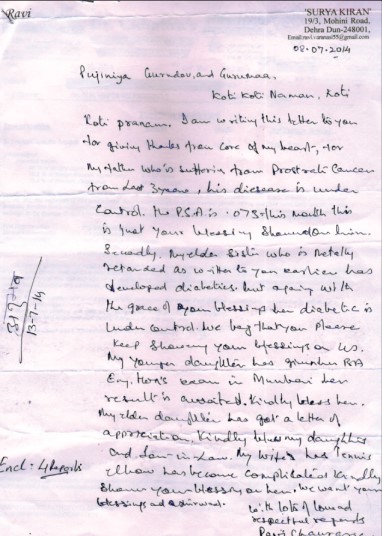 Ravi
'SURYA KIRAN'
19/3, Mohini Road,
Dehra Dun-248001,
08-07-2014
Pujiniya Gurudev, and Gurumaa,
Koti Koti Naman, Koti
Koti pranam. I am writing this letter to you
for giving thanks from core of my heart, for
My father who is suffering from Prostrate Cancer
from last 3 years, his diecease is under
Control. the P.S.A. is .073 this month this
is just your blessing on him.
Secondly, My elder Sister who is
retarded as written to you earlier has
developed diabetics. but again with
the grace of your blessings her diabetic is
under control. We beg that you please
keep your blessings on us.
My younger daughter has given her BA
Eng. Hon's exam in Mumbai her
result is awaited. Kindly bless her.
My elder daughter has got a letter of
appreciation. Kindly bless my daughter
and Son-in-Law. My wife has Tennis
elbow has become complicated Kindly
your blessing on her. We want your
blessings
with lots of love and
respectful regards
Encl: 4 Reports
13-7-14